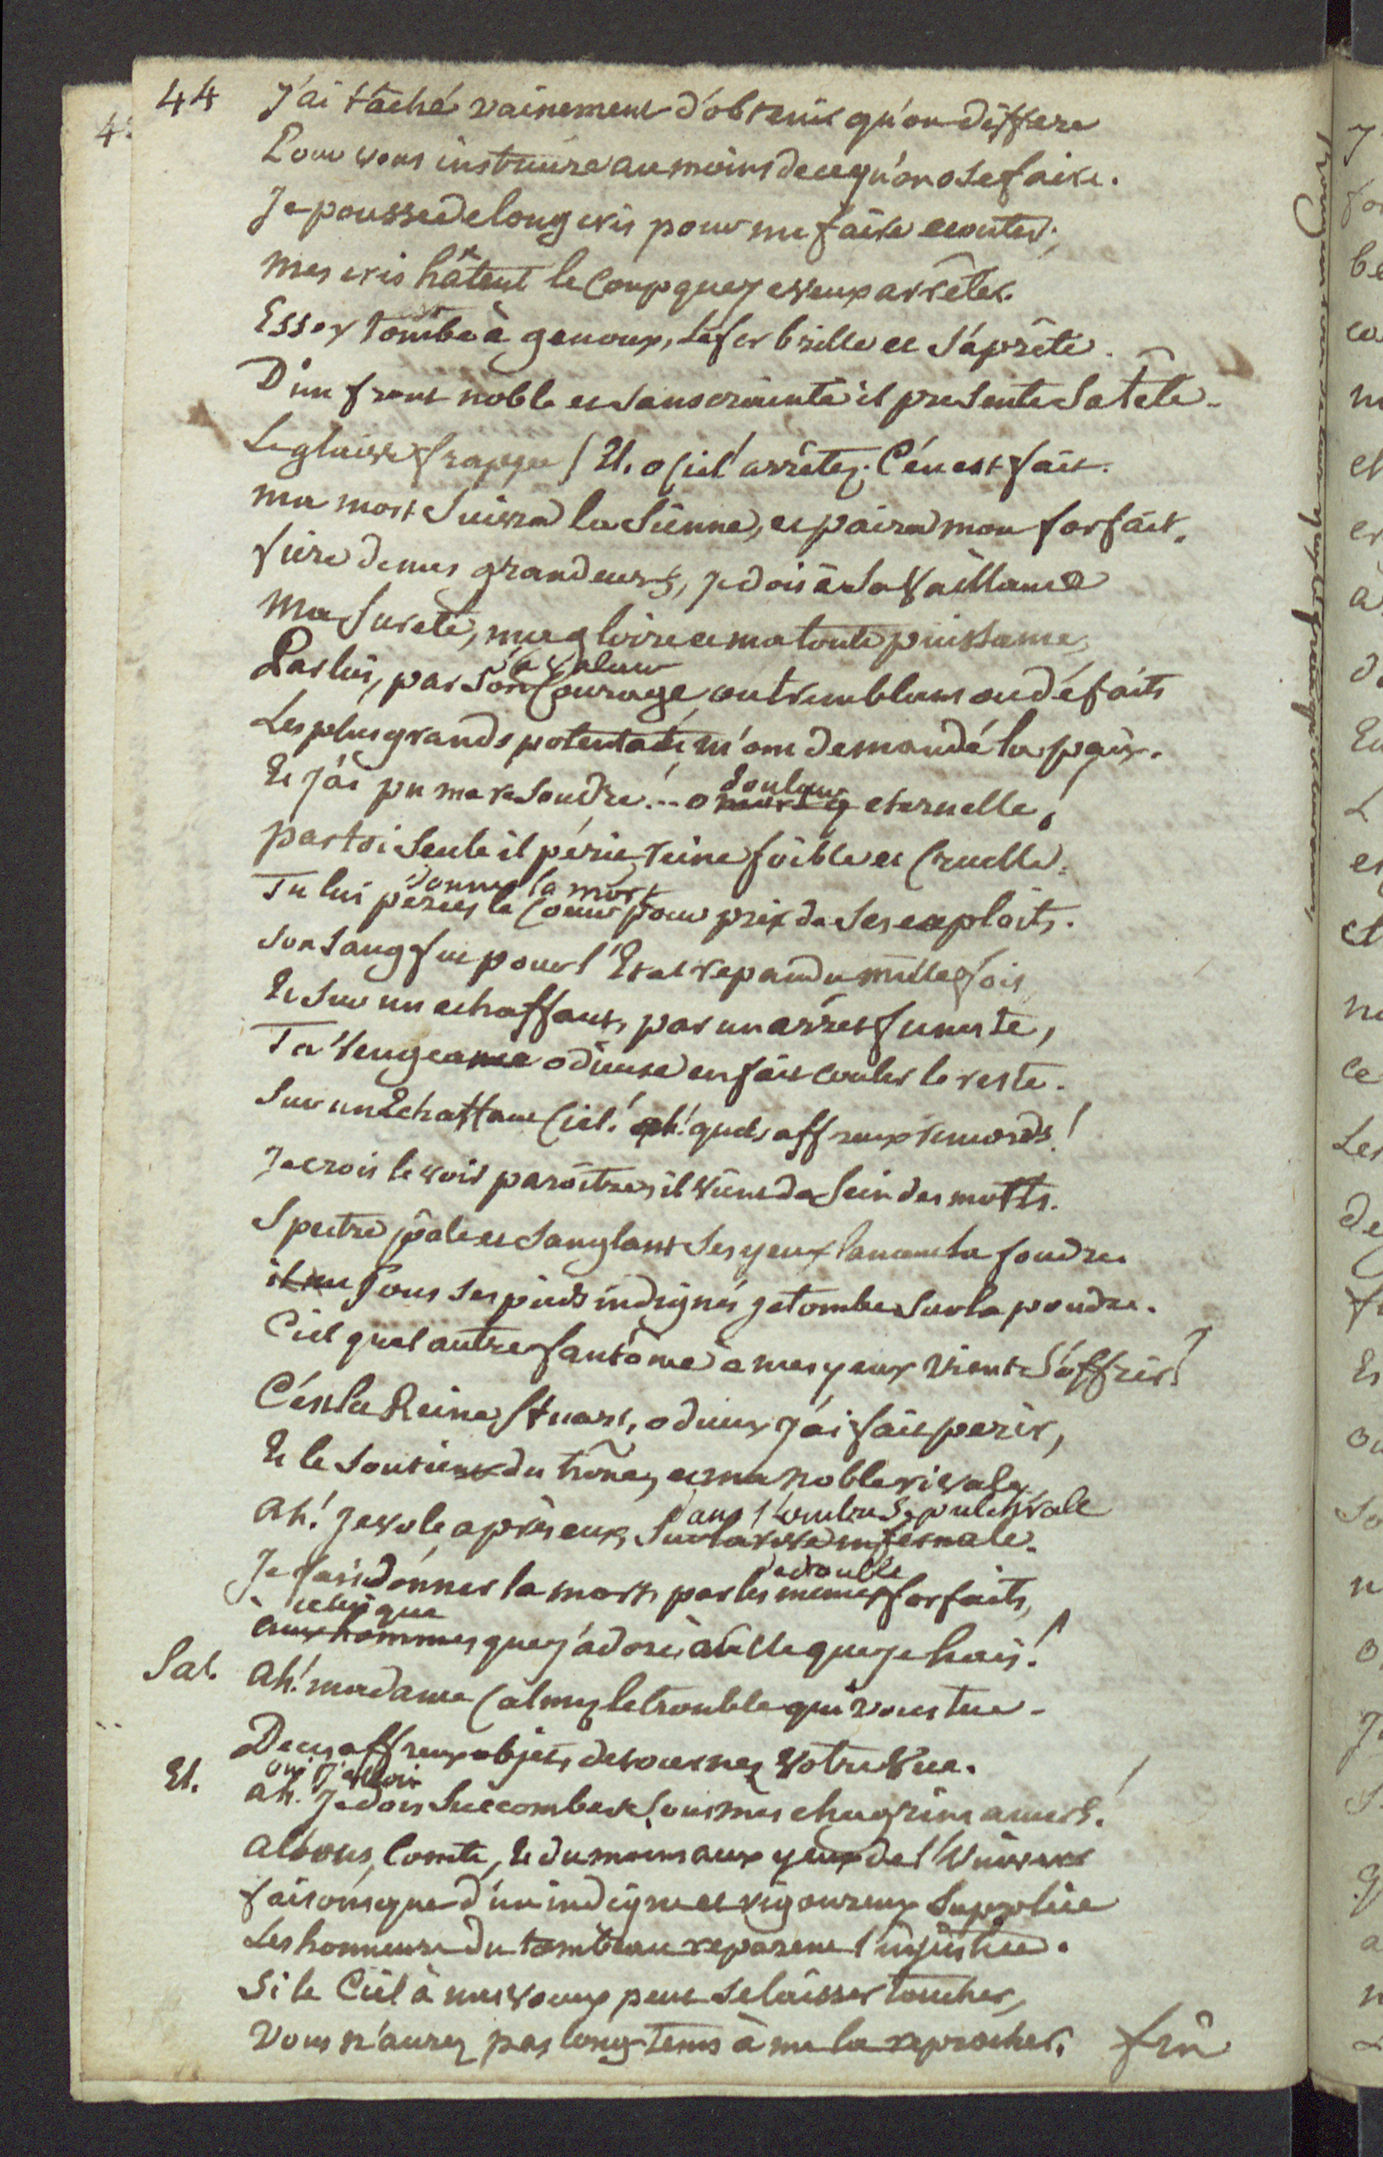 44
J'ai tâché vainement d'obtenir qu'on differe
Pour vous instruire au moins de ce qu'on ose faire.
Je pousse de long cris pour me faire ecouter;
mes cris hâtent le coup que je veux arrêter.
Essex tombe à genoux, le fer brille et s'aprête.
D'un front noble et sans crainte il presente sa tête.
Le glaive frappe / El. o Ciel! arrêtez. C'en est fait.
ma mort suivra la sienne, et paira mon forfait.
fiere de mes grandeurs, je dois à sa vaillance
Ma sureté, ma gloire et ma toute puissance,
sa valeur
Par lui, par son Courage ou tremblans ou défaits
Les plus grands potentats, m'ont demandé la paix.
douleur
Et j'ai pu me resoudre!.. o eternelle!
par toi seule il périt, reine foible et Cruelle.
donnes la mort
Tu lui perces le Coeur pour prix de ses exploits.
Son sang fut pour l'Etat repandu mille fois
Et sur un echaffaut, par un arrest funeste,
Ta Vengeance odieuse en fait couler le reste.
Sur un Echaffaut Ciel! ah! quels affreux remords!
Je crois le voir paroître, il vient du sein des morts.
Spectre pâle et sanglant ses yeux lancent la foudre.
il me Sous ses pieds indignés je tombe sur la poudre.
Ciel quel autre fantôme à mes yeux vient s'offrir!
C'est la Reine Stuart, o dieux j'ai fait perir,
Et le soutient du trône, et ma noble rivale
dans l'ombre sepulchrale
Ah! je vole après eux, Sur la rive infernale.
redouble
Je fais donner la mort, par les memes forfaits,
celui que
à aux hommes que j'adore, à celle que je hais!
Sal. Ah! madame Calmez le trouble qui vous tue.
De ces affreux objets detournez votre Vue.
oui j'espoir
El. Ah. Je dois succomber sous mes chagrins amers!
allons, Comte, Et du moins aux yeux de l'Univers
faisons que d'un indigne et rigoureux supplice
Les honneurs du tombeau reparent l'injustice.
Si le Ciel à mes voeux peut se laisser toucher,
Vous n'aurez pas long-tems à me la reprocher. fin